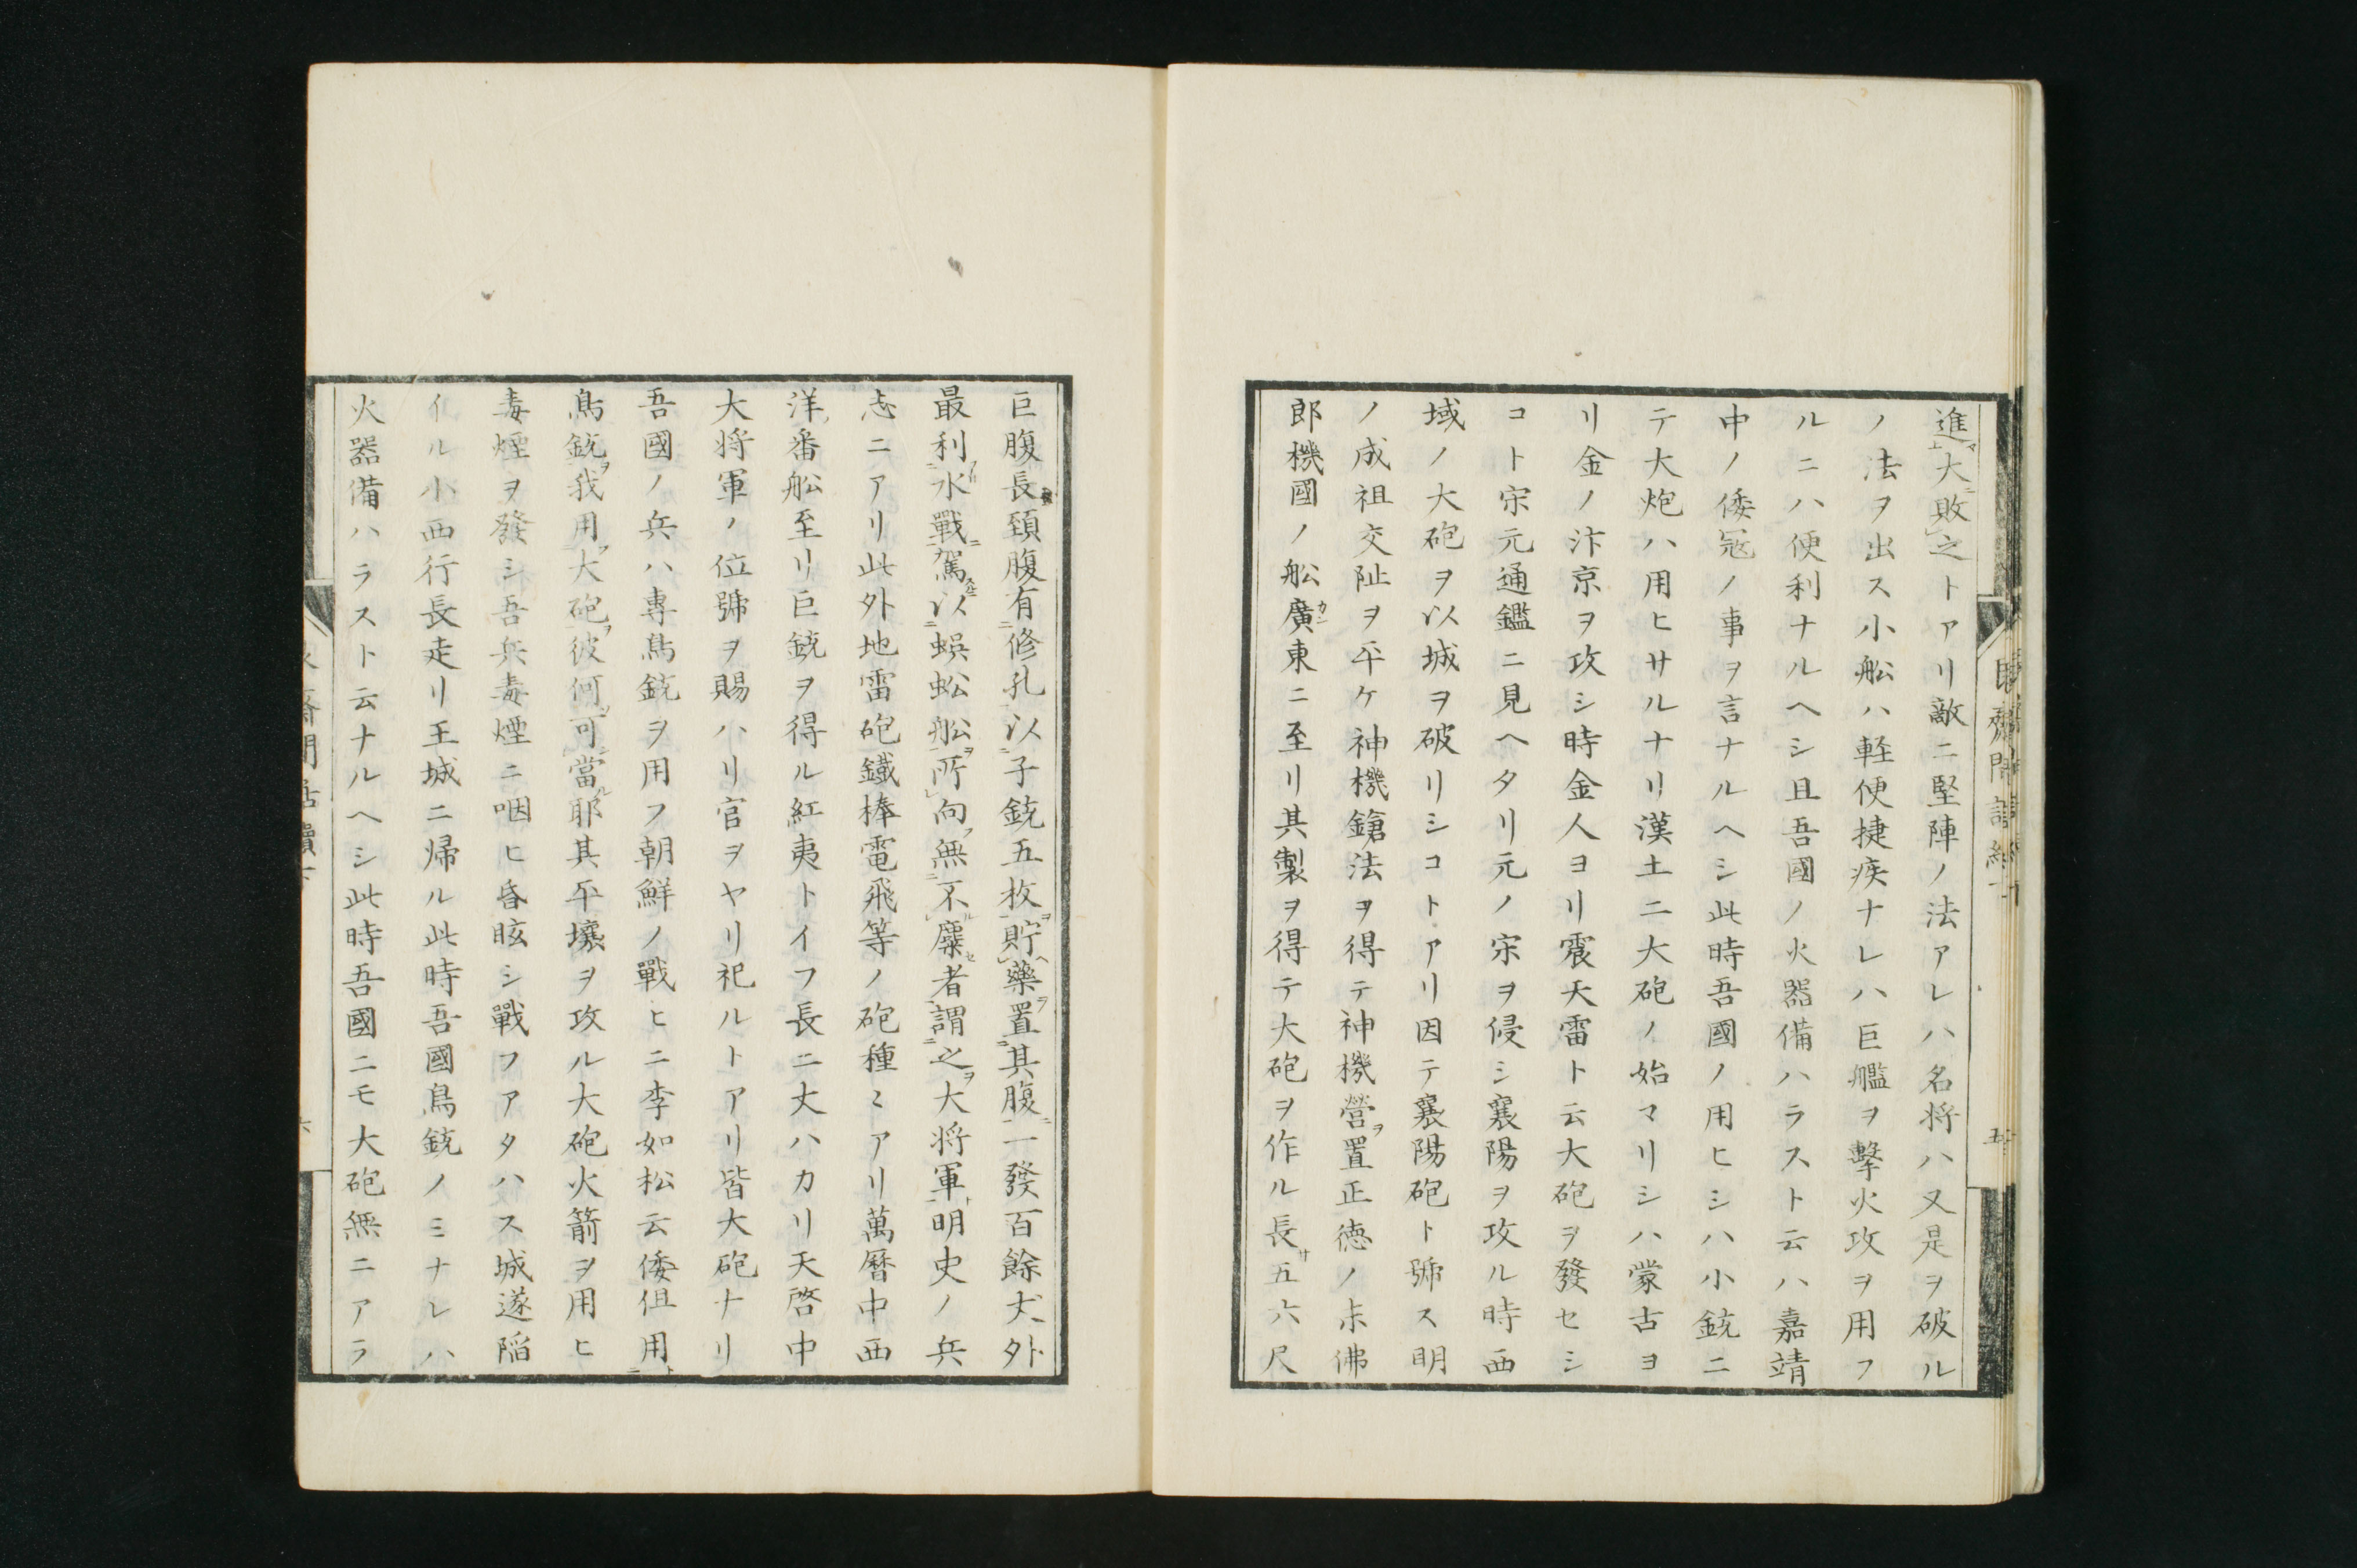 進大敗之トアリ敵ニ堅陣ノ法アレハ名将ハ又是ヲ破ル
ノ法ヲ出ス小船ハ軽便捷疾ナレハ巨艦ヲ撃火攻ヲ用フ
ルニハ便利ナルヘシ且吾國ノ火器備ハラスト云ハ嘉靖
中ノ倭冦ノ事ヲ言ナルヘシ此時吾國ノ用ヒシハ小銃ニ
テ大炮ハ用ヒサルナリ漢土ニ大砲ノ始マリシハ蒙古ヨ
リ金ノ汴京ヲ攻シ時金人ヨリ震天雷ト云大砲ヲ發セシ
コト宋元通鑑ニ見ヘタリ元ノ宋ヲ侵シ襄陽ヲ攻ル時西
域ノ大砲ヲ以城ヲ破リシコトアリ因テ襄陽砲ト號ス明
ノ成祖交阯ヲ平ケ神機鎗法ヲ得テ神機營ヲ置正徳ノ末佛
郎機國ノ舩廣東ニ至リ其製ヲ得テ大砲ヲ作ル長サ五六尺
巨腹長頚腹有修孔以子銃五枚貯藥置其腹一發百餘丈外
最利水戰駕以蜈蚣舩所向無不麋者謂之大将軍明史ノ兵
志ニアリ此外地雷砲鐵棒電飛等ノ砲種〻アリ萬暦中西
洋番舩至リ巨銃ヲ得ル紅夷トイフ長ニ丈ハカリ天啓中
大将軍ノ位號ヲ賜ハリ官ヲヤリ祀ルトアリ皆大砲ナリ
吾國ノ兵ハ專鳥銃ヲ用フ朝鮮ノ戰ヒニ李如松云倭但用
鳥銃我用大砲彼何可當耶其平壌ヲ攻ル大砲火箭ヲ用ヒ
毒煙ヲ發シ吾兵毒煙ニ咽ヒ昏眩シ戰フアタハス城遂陥
イル小西行長走リ王城ニ帰ル此時吾國鳥銃ノミナレハ
火器備ハラスト云ナルヘシ此時吾國ニモ大砲無ニアラ